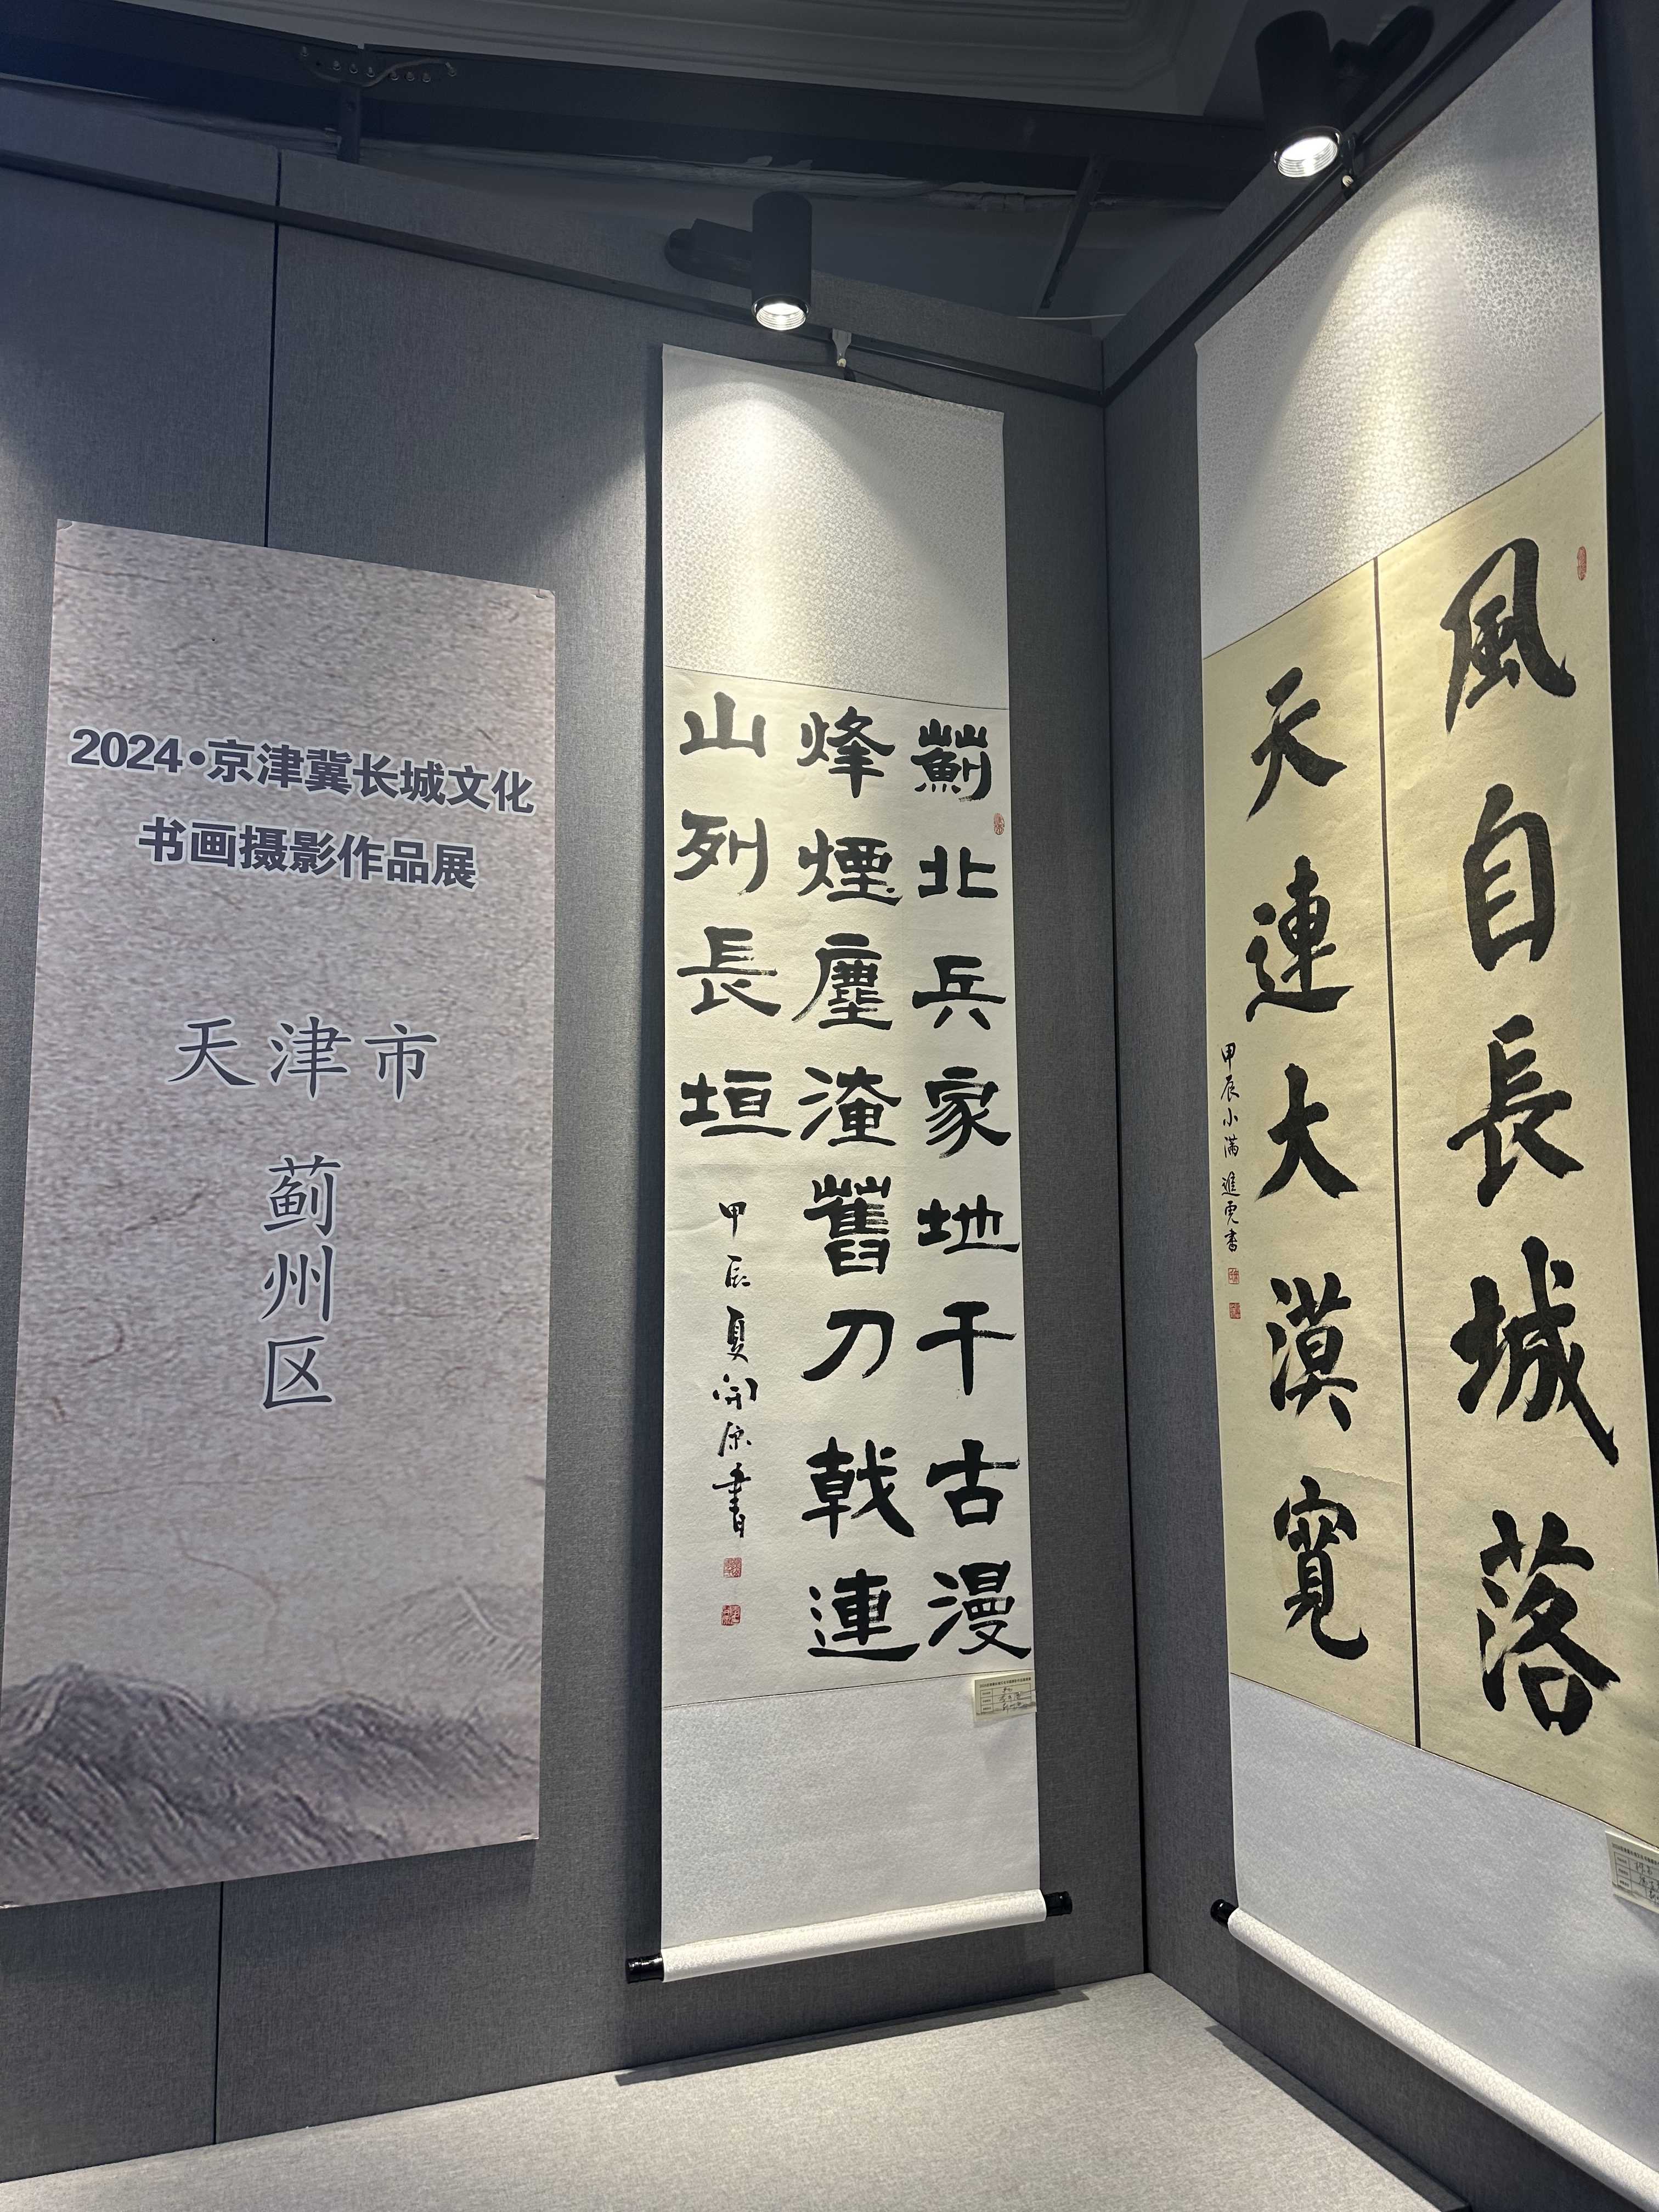 2024·京津冀长城文化
书画摄影作品展
天津市
蓟州区
薊北兵家地千古漫
烽煙塵淹舊刀戟連
山列長垣
甲辰夏開源書
風自長城落
天連大漠寬
甲辰小满進虎書